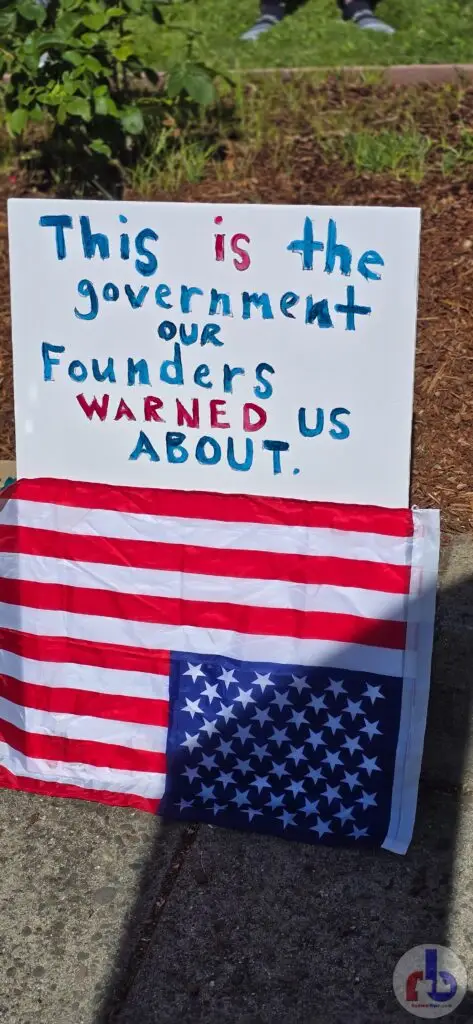 This is the
government
OUR
Founders
WARNED US
ABOUT.